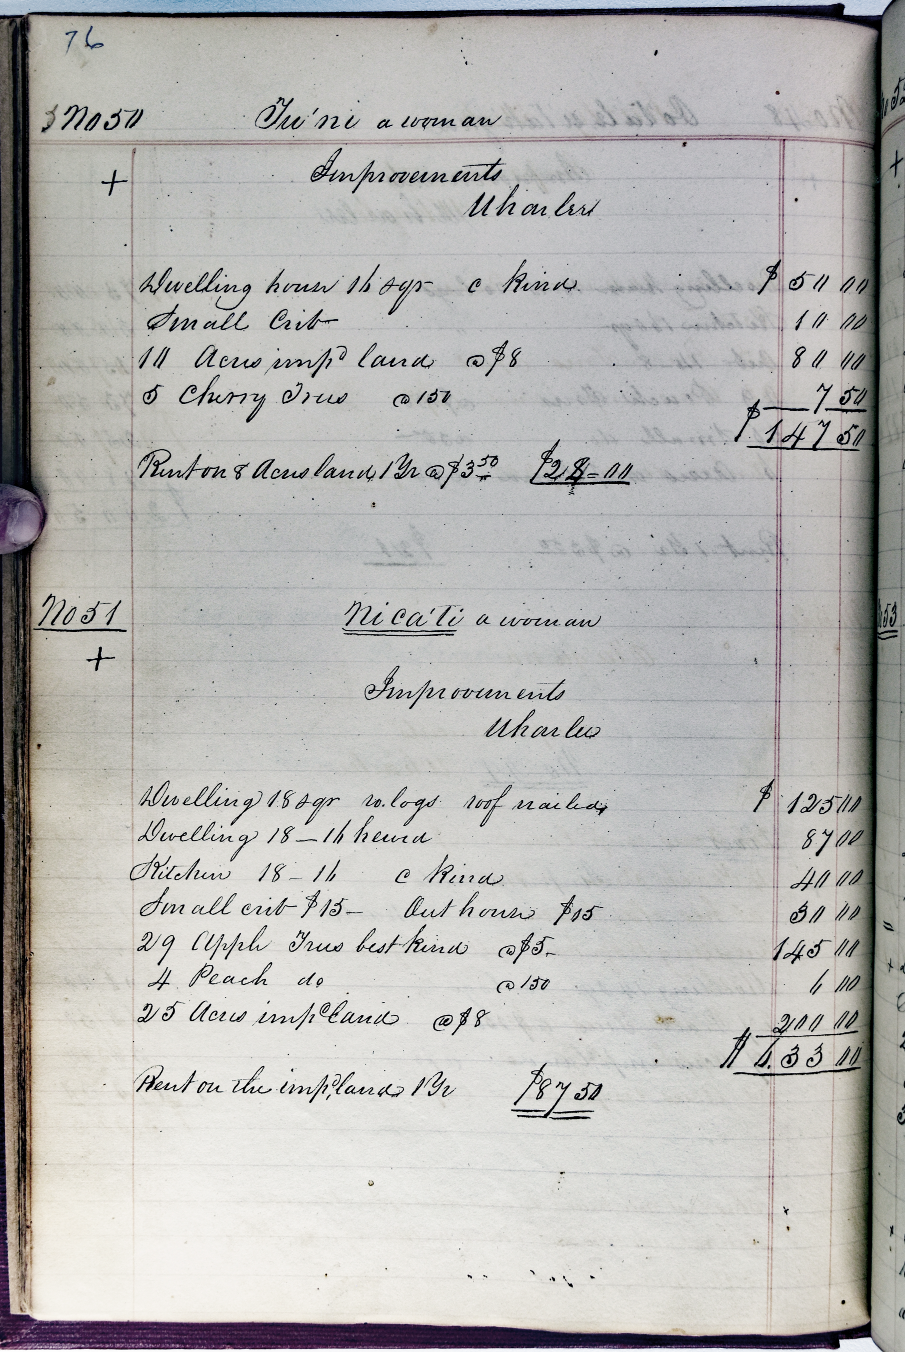 76
No 50 Tu'ni a woman
+ Improvements
Uharlee
Dwelling house 16 sqr c kind $ 50 00
Small Crib 10 00
10 Acres imp^d land @ $8 80 00
5 Cherry Trees @ 150 7 50
$ 147 50
Rent on 8 Acres land 1 Yr @ $3 50 $28=00
No 51 Nica'ti a woman
+
Improvements
Uharlee
Dwelling 18 sqr r. logs roof nailed $ 125 00
Dwelling 18 – 16 hewd 87 00
Kitchen 18 – 16 c kind 40 00
Small crib $15 – Out house $15 30 00
29 Apple Trees best kind @ $5– 145 00
4 Peach do @ 150 6 00
25 Acres imp^d land @ $8 200 00
$ 633 00
Rent on the imp^d land 1 Yr $87 50
53